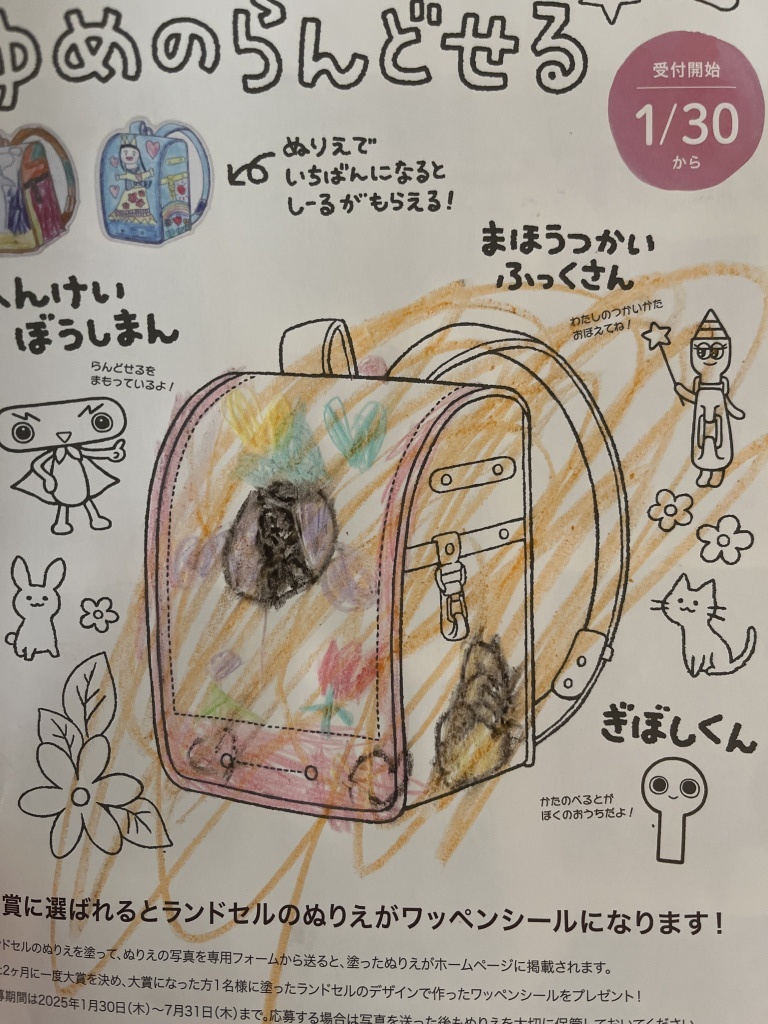 ゆめのらんどせる
受付開始
1/30
から
ぬりえで
いちばんになると
しーるがもらえる!
まほうつかい
ふっくさん
わたしのつかいかた
おぼえてね!
んけい
ぼうしまん
らんどせるを
まもっているよ!
ぎぼしくん
かたのべるとが
ぼくのおうちだよ!
賞に選ばれるとランドセルのぬりえがワッペンシールになります!
ドセルのぬりえを塗って、ぬりえの写真を専用フォームから送ると、塗ったぬりえがホームページに掲載されます。
2ヶ月に一度大賞を決め、大賞になった方1名様に塗ったランドセルのデザインで作ったワッペンシールをプレゼント!
募期間は2025年1月30日(木)〜7月31日(木)まで。応募する場合は写真を送った後もぬりえを大切に保管しておいてください